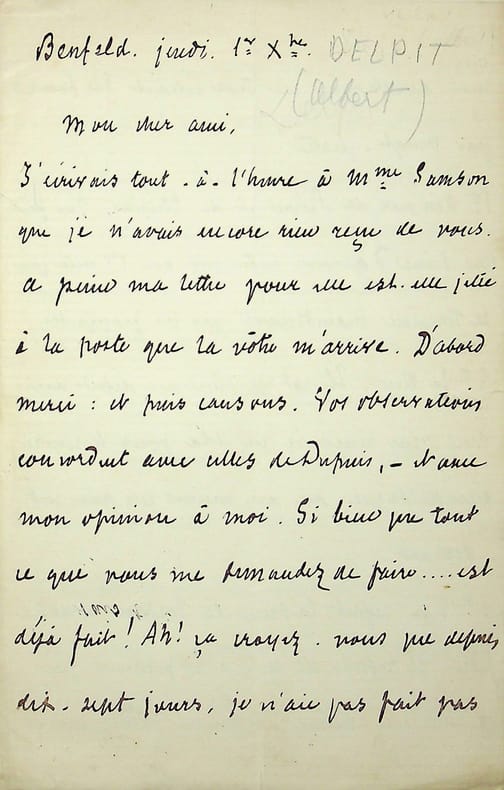 Benfeld. jeudi. 1er Xbre. DELPIT
(Albert)
Mon cher ami,
J'écrivais tout-à-l'heure à Mme Samson
que je n'avais encore rien reçu de vous.
A peine ma lettre pour elle est-elle jetée
à la poste que la vôtre m'arrive. D'abord
merci : et puis causons. Vos observations
concordent avec celles de Dupuis, – et avec
mon opinion à moi. Si bien que tout
ce que vous me demandez de faire.... est
déjà fait ! Ah! ça croyez-vous que depuis
dix-sept jours, je n'aie pas fait pas